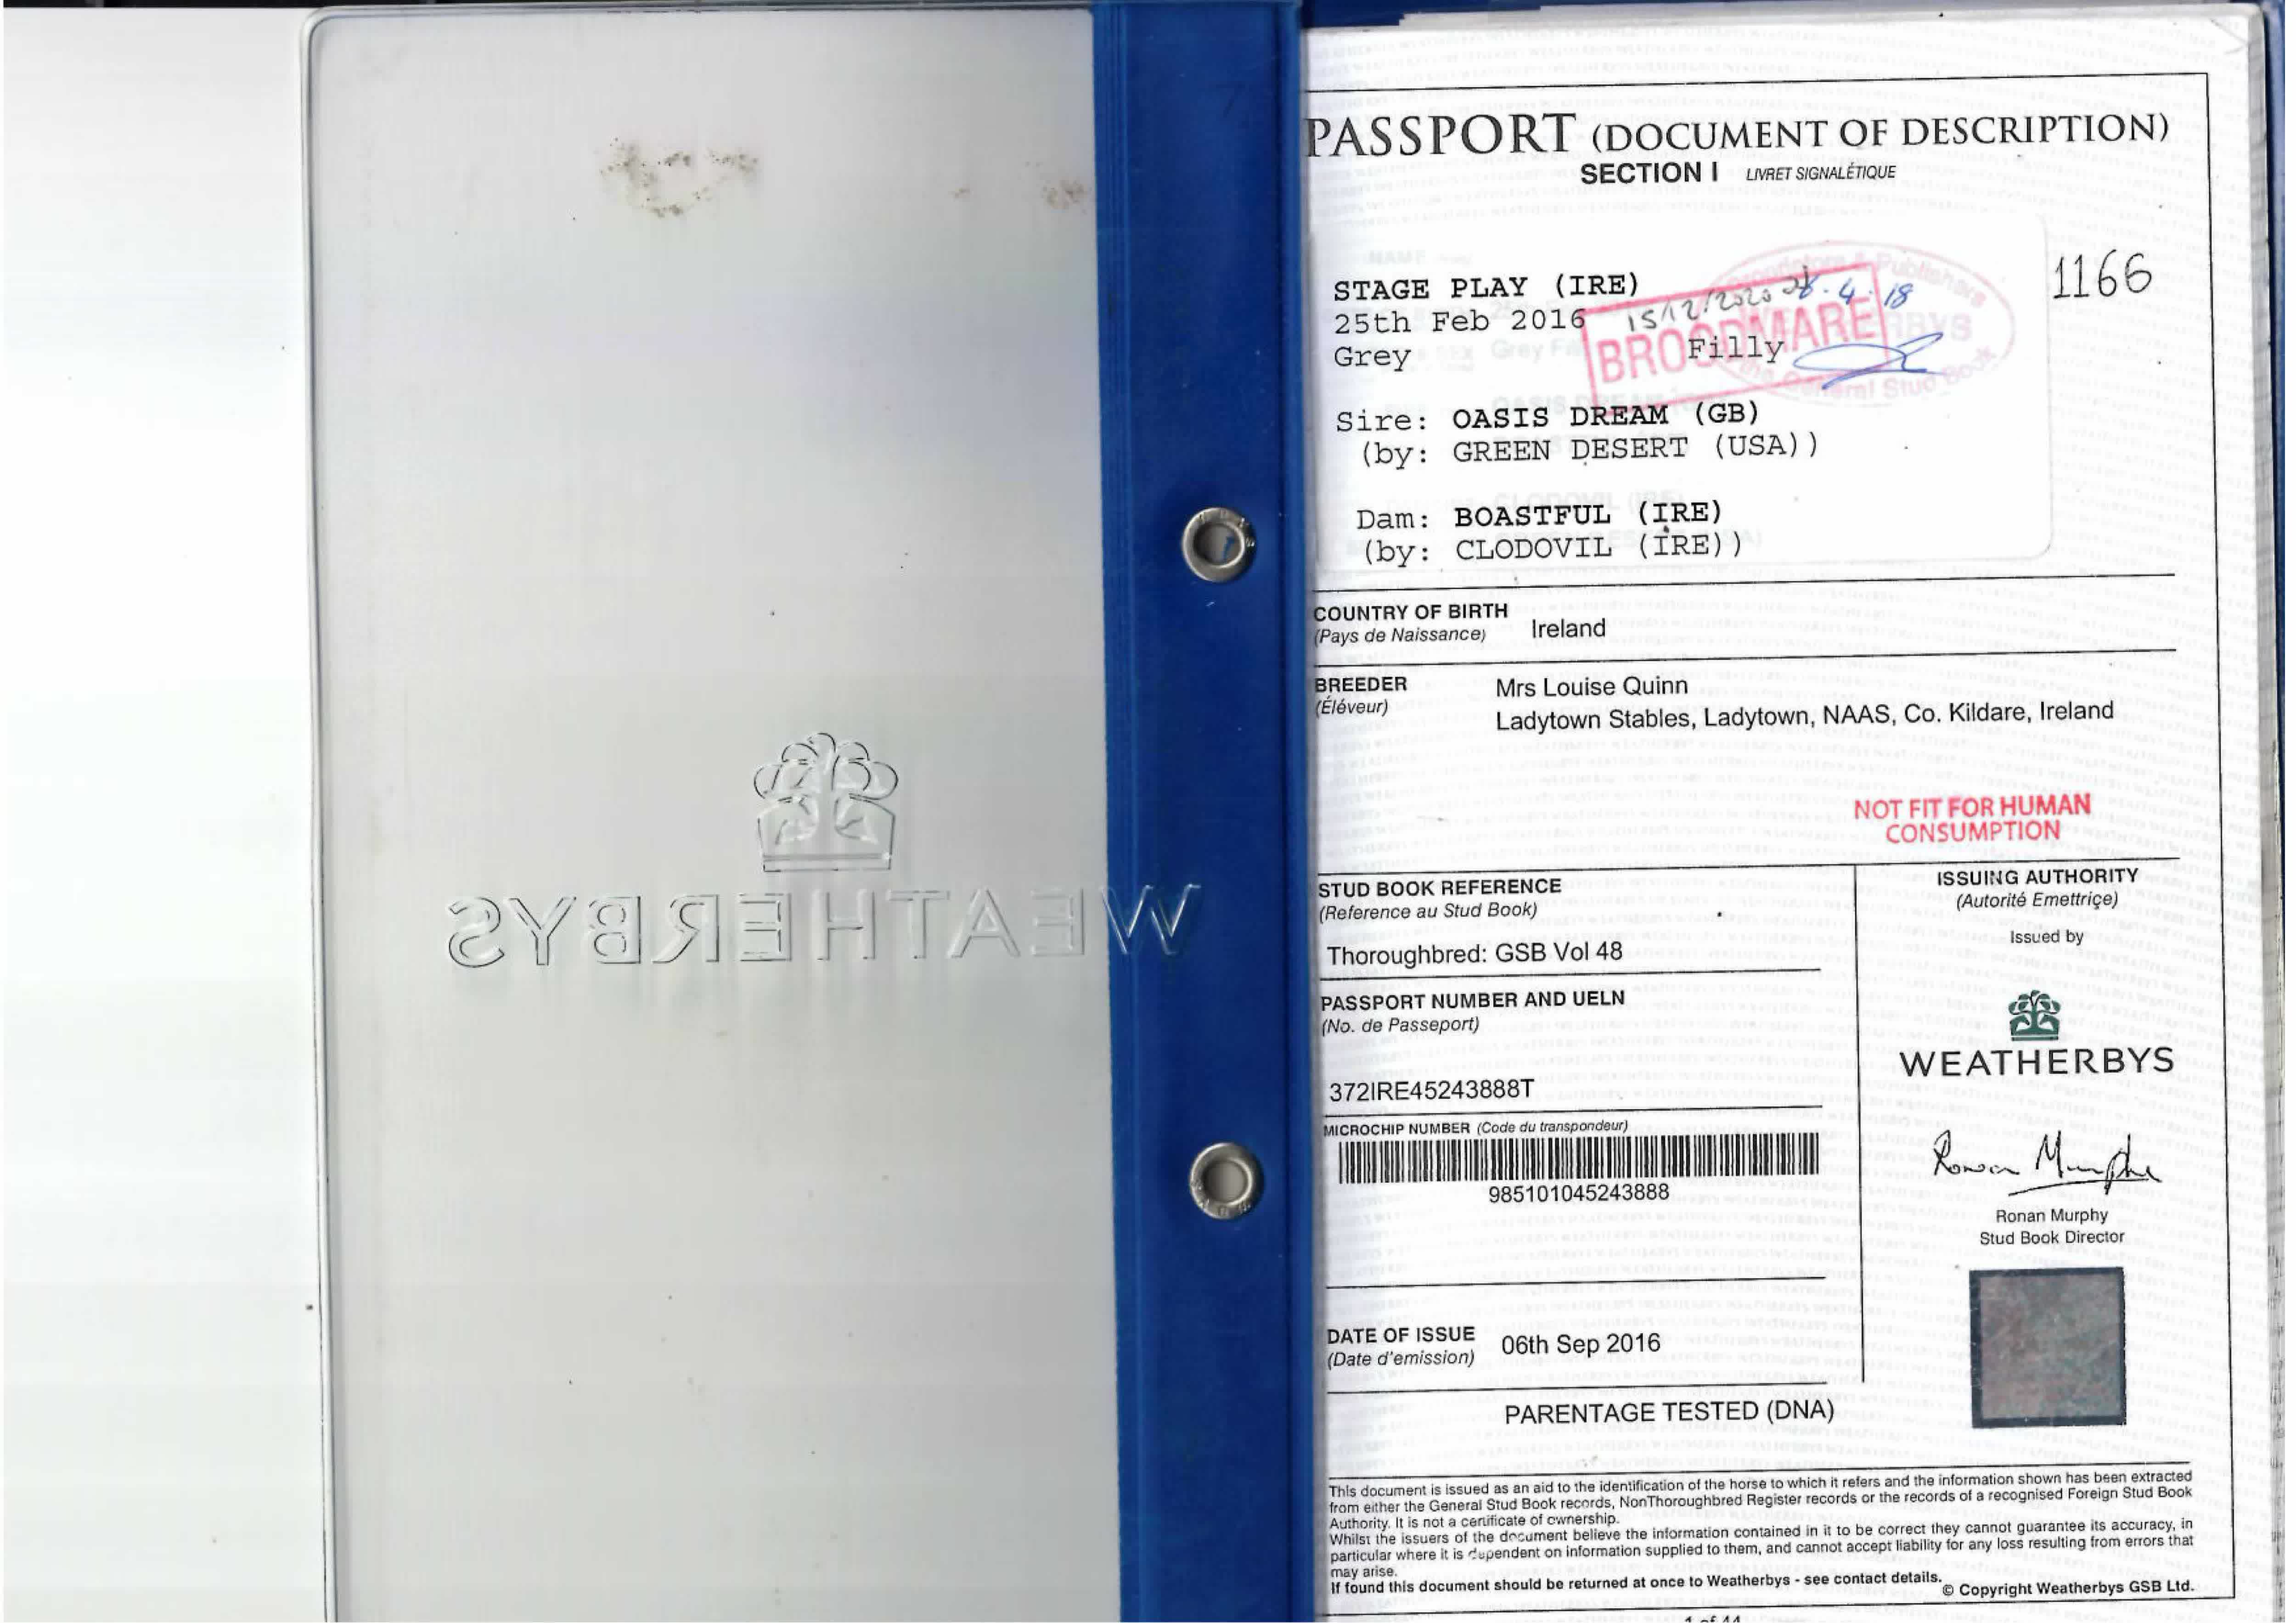 WEATHERBYS
PASSPORT (DOCUMENT OF DESCRIPTION)
SECTION I LIVRET SIGNALÉTIQUE
1166
STAGE PLAY (IRE)
15/12/2020
4.18
25th Feb 2016
BROODMARE
Grey Filly
the General Stud Book
Sire: OASIS DREAM (GB)
(by: GREEN DESERT (USA))
Dam: BOASTFUL (IRE)
(by: CLODOVIL (IRE))
COUNTRY OF BIRTH
(Pays de Naissance) Ireland
BREEDER Mrs Louise Quinn
(Éléveur)
Ladytown Stables, Ladytown, NAAS, Co. Kildare, Ireland
NOT FIT FOR HUMAN
CONSUMPTION
STUD BOOK REFERENCE
(Reference au Stud Book)
Thoroughbred: GSB Vol 48
PASSPORT NUMBER AND UELN
(No. de Passeport)
372IRE45243888T
MICROCHIP NUMBER (Code du transpondeur)
985101045243888
DATE OF ISSUE
(Date d'emission) 06th Sep 2016
ISSUING AUTHORITY
(Autorité Emettriçe)
Issued by
WEATHERBYS
Ronan Murphy
Ronan Murphy
Stud Book Director
PARENTAGE TESTED (DNA)
This document is issued as an aid to the identification of the horse to which it refers and the information shown has been extracted
from either the General Stud Book records, NonThoroughbred Register records or the records of a recognised Foreign Stud Book
Authority. It is not a certificate of ownership.
Whilst the issuers of the document believe the information contained in it to be correct they cannot guarantee its accuracy, in
particular where it is dependent on information supplied to them, and cannot accept liability for any loss resulting from errors that
may arise.
If found this document should be returned at once to Weatherbys - see contact details.
© Copyright Weatherbys GSB Ltd.
1 of 44